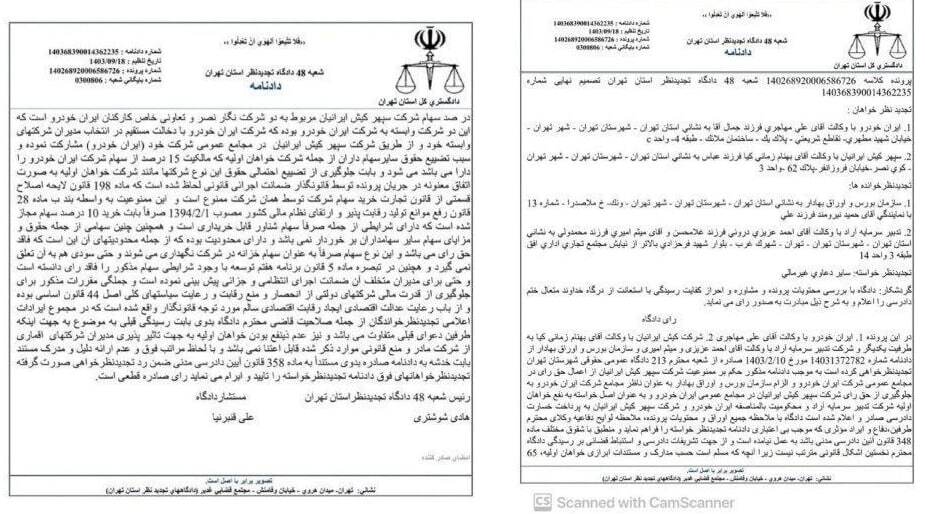 ،،فلا تتبعوا الهوي ان تعدلوا ،،
شماره دادنامه : 140368390014362235
تاریخ تنظیم : 1403/09/18
شماره پرونده : 140268920006586726
شماره بایگانی شعبه : 0300806
شعبه 48 دادگاه تجدیدنظر استان تهران
دادنامه
دادگستري کل استان تهران
پرونده کلاسه 140268920006586726 شعبه 48 دادگاه تجدیدنظر استان تهران تصمیم نهایی شماره
140368390014362235
تجدید نظر خواهان :
1. ایران خودرو با وکالت آقای علي مهاجري فرزند جمال آقا به نشاني استان تهران - شهرستان تهران - شهر تهران -
خیابان شهید مطهري- تقاطع شریعتي - پلاك يك - ساختمان ملانك - طبقه 4- واحد c
2. سپهر کیش ایرانیان با وکالت آقای بهنام زماني کیا فرزند عباس به نشاني استان تهران - شهرستان تهران - شهر تهران
- کوي نصر-خیابان فروزانفر-پلاك 62 -واحد 3
تجدیدنظرخوانده ها:
1. سازمان بورس و اوراق بهادار به نشاني استان تهران - شهرستان تهران - شهر تهران - ونك- خ ملاصدرا - شماره 13
با نمایندگي آقای حمید نیرومند فرزند علي
2. تدبیر سرمایه آراد با وکالت آقای احمد عزیزي دروني فرزند غلامحسن و آقای میثم امیري فرزند محمدولي به نشاني
استان تهران - شهرستان تهران - تهران - شهرك غرب - بلوار شهید فرحزادي بالاتر از نیایش مجتمع تجاري اداري افق
طبقه 3 واحد 14
تجدیدنظر خواسته: سایر دعاوي غیرمالي
گردشکار: دادگاه با بررسی محتویات پرونده و مشاوره و احراز کفایت رسیدگی با استعانت از درگاه خداوند متعال ختم
دادرسی را اعلام و به شرح ذیل مبادرت به صدور رای می نماید.
رای دادگاه
در این پرونده 1. ایران خودرو با وکالت آقای علی مهاجری 2. شرکت سپهر کیش ایرانیان با وکالت آقای بهنام زمانی کیا به
طرفیت یکدیگر و شرکت تدبیر سرمایه آراد با وکالت آقای احمد عزیزی و میثم امیری و سازمان بورس و اوراق بهادار از
دادنامه شماره 14031372782 مورخ 1403/2/10 صادره از شعبه محترم 213 دادگاه عمومی حقوقی شهرستان تهران
تجدیدنظرخواهی کرده است به موجب دادنامه مذکور حکم بر ممنوعیت شرکت سپهر کیش ایرانیان از اعمال حق رای در
مجامع عمومی شرکت ایران خودرو و الزام سازمان بورس و اوراق بهادار به عنوان ناظر مجامع شرکت ایران خودرو به
جلوگیری از حق رای شرکت سپهر کیش ایرانیان در مجامع عمومی ایران خودرو و به عنوان اصل خواسته به نفع خواهان
اولیه شرکت تدبیر سرمایه آراد و محکومیت بالمناصفه ایران خودرو و شرکت سپهر کیش ایرانیان به پرداخت خسارت
دادرسی صادر و اعلام شده است دادگاه با ملاحظه جمیع اوراق و محتویات پرونده، ملاحظه لوایح دفاعیه وکلای محترم
طرفین،دفاع و ایراد مؤثری که موجب بی اعتباری دادنامه تجدیدنظر خواسته را فراهم نماید و منطبق با شقوق مختلف ماده
348 قانون آئین دادرسی مدنی باشد به عمل نیامده است و از جهت تشریفات دادرسی و استنباط قضائی بر رسیدگی دادگاه
محترم نخستین اشکال قانونی مترتب نیست زیرا آنچه که مسلم است حسب مدارک و مستندات ابرازی خواهان اولیه، 65
تصویر برابر با اصل است.
نشاني: تهران- میدان هروي - خیابان وفامنش - مجتمع قضایي غدیر (دادگاههاي تجدید نظر استان تهران)
CS Scanned with CamScanner
،،فلا تتبعوا الهوي ان تعدلوا ،،
شماره دادنامه : 140368390014362235
تاریخ تنظیم : 1403/09/18
شماره پرونده : 140268920006586726
شماره بایگانی شعبه : 0300806
شعبه 48 دادگاه تجدیدنظر استان تهران
دادنامه
دادگستري کل استان تهران
در صد سهام شرکت سپهر کیش ایرانیان مربوط به دو شرکت نگار نصر و تعاونی خاص کارکنان ایران خودرو است که
این دو شرکت وابسته به شرکت ایران خودرو بوده که شرکت ایران خودرو با دخالت مستقیم در انتخاب مدیران شرکتهای
وابسته خود و از طریق شرکت سپهر کیش ایرانیان در مجامع عمومی شرکت خود (ایران خودرو) مشارکت نموده و
سبب تضییع حقوق سایرسهام داران از جمله شرکت خواهان اولیه که مالکیت 15 درصد از سهام شرکت ایران خودرو را
دارا می باشد می شود و بابت جلوگیری از تضییع احتمالی حقوق این نوع شرکتها مانند شرکت خواهان اولیه به صورت
اتفاق معنونه در جریان پرونده توسط قانونگذار ضمانت اجرائی قانونی لحاظ شده است که ماده 198 قانون لایحه اصلاح
قسمتی از قانون تجارت خرید سهام شرکت توسط همان شرکت ممنوع است و این ممنوعیت به واسطه بند ب ماده 28
قانون رفع موانع تولید رقابت پذیر و ارتقای نظام مالی کشور مصوب 1394/2/1 صرفاً بابت خرید 10 درصد سهام مجاز
شده است که دارای شرایطی از جمله صرفاً سهام شناور قابل خریداری است و همچنین چنین سهامی از جمله حقوق و
مزایای سهام سایر سهامداران بر خوردار نمی باشد و دارای محدودیت بوده که از جمله محدودیتهای آن این است که فاقد
حق رای می باشد و این نوع سهام صرفاً به عنوان سهام خزانه در شرکت نگهداری می شوند و حتی سودی هم به آن تعلق
نمی گیرد و همچنین در تبصره ماده 5 قانون برنامه هفتم توسعه با وجود شرایطی سهام مذکور را فاقد رای دانسته است
و حتی برای مدیران متخلف آن ضمانت اجرای انتظامی و جزائی پیش بینی نموده است و جملگی مقررات مذکور برای
جلوگیری از قدرت مالی شرکتهای دولتی از انحصار و منع رقابت و رعایت سیاستهای کلی اصل 44 قانون اساسی بوده
و از باب رعایت عدالت اقتصادی ایجاد رقابت اقتصادی سالم مورد توجه قانونگذار واقع شده است که در مجموع ایرادات
اعلامی تجدیدنظرخواندگان از جمله صلاحیت قاضی محترم دادگاه بدوی بابت رسیدگی قبلی به موضوع به جهت اینکه
طرفین دعوای قبلی متفاوت می باشد و نیز عدم ذینفع بودن خواهان اولیه به جهت تاثیر پذیری مدیران شرکتهای اقماری
از شرکت مادر و منع قانونی موارد ذکر شده قابل اعتنا نمی باشد و با لحاظ مراتب فوق و عدم ارائه دلیل و مدرک مستند
بابت خدشه به دادنامه صادره بدوی مستنداً به ماده 358 قانون آیین دادرسی مدنی ضمن رد تجدیدنظرخواهی صورت گرفته
تجدیدنظرخواهانهای فوق دادنامه تجدیدنظرخواسته را تایید و ابرام می نماید رای صادره قطعی است.
رئیس شعبه 48 دادگاه تجدیدنظراستان تهران مستشاردادگاه
هادی شوشتری علی قنبرنیا
امضاي صادر کننده
تصویر برابر با اصل است.
نشاني: تهران- میدان هروي - خیابان وفامنش - مجتمع قضایي غدیر (دادگاههاي تجدید نظر استان تهران)